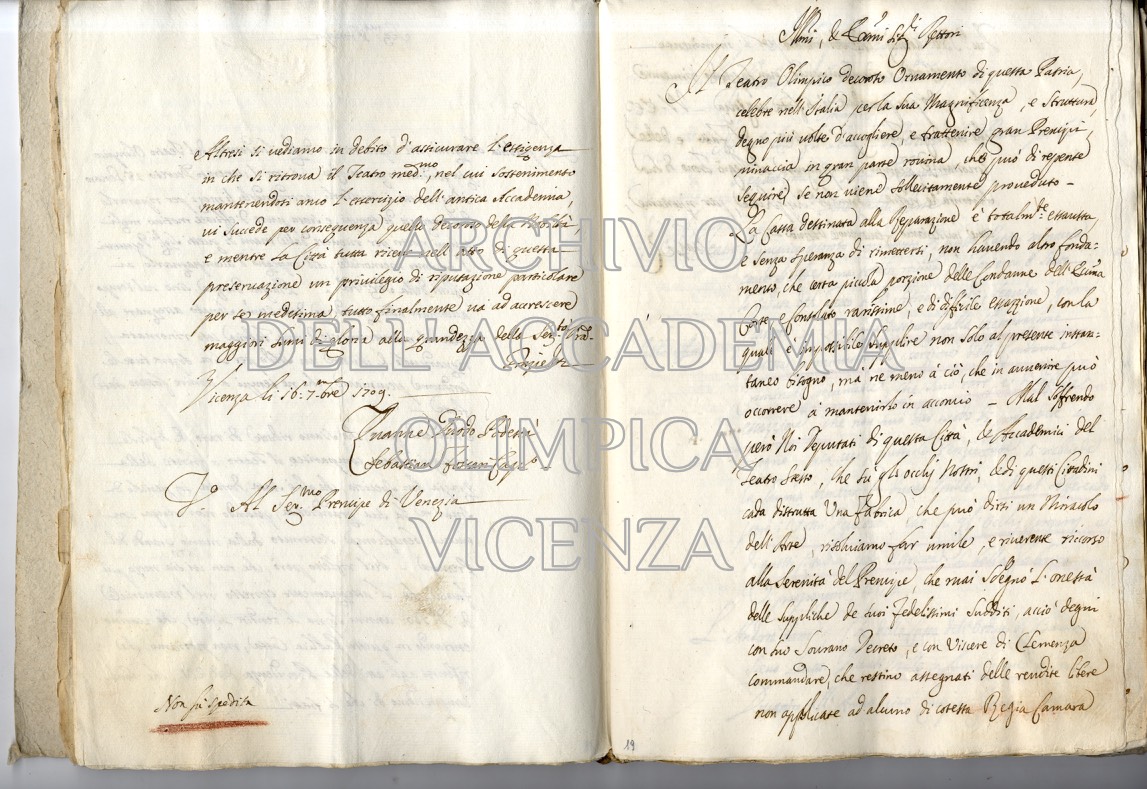 Altresi si vediamo in debito d'assicurare l'essigenza
in che si ritrova il Teatro med.mo, nel cui sostenimento
mantenendosi anco l'essercizio dell'antica Accademia,
vi succede per conseguenza quello decoro della Nobiltà,
e mentre la Città tutta riceve nell'atto di questa
preservazione un privilegio di riputazione particolare
per se medesima, tutto finalmente và ad accrescere
maggiori lumi di gloria alla grandezza della Ser.ma
Grazie &
Vicenza li 16: 7.bre 1709.
Podestà
Sebastian Cap.o
Al Ser.mo Prencipe di Venezia
Non fù spedita
Illmi, & Eccmi Sig.ri Rettori
Il Teatro Olimpico decoroso Ornamento di questa Patria,
celebre nell'Italia per la sua Magnificenza, e Struttura,
degno più volte d'accogliere, e trattenere gran Prencipi,
minaccia in gran parte rovina, che può di repente
seguire, se non viene sollecitamente proveduto -
La Cassa destinata alla Reparazione è totalm.te essausta,
e senza speranza di rimettersi, non havendo altro fonda-
mento, che certa picciola porzione delle Condanne dell'Eccma
Corte, e Consolato rarissime, e di difficile essazzione, con la
quale è impossibile supplire non solo al presente instan-
taneo bisogno, mà nè meno à ciò, che in avvenire può
occorrere à mantenirlo in acconcio - Mal soffrendo
però Noi Deputati di questa Città, & Accademici del
Teatro stesso, che sù gl'occhij Nostri, & di questi Cittadini
cada distrutta una Fabrica, che può dirsi un Miracolo
dell'Arte, risolviamo far umile, e riverente ricorso
alla Serenità del Prencipe, che mai sdegnò l'onestà
delle suppliche de suoi Fedelissimi Sudditi, acciò degni
con suo Sourano Decreto, e con Viscere di Clemenza
commandare, che restino assegnati delle rendite libere
non applicate ad alcuno di cotesta Regia Camara
19
ARCHIVIO
DELL'ACCADEMIA
OLIMPICA
VICENZA